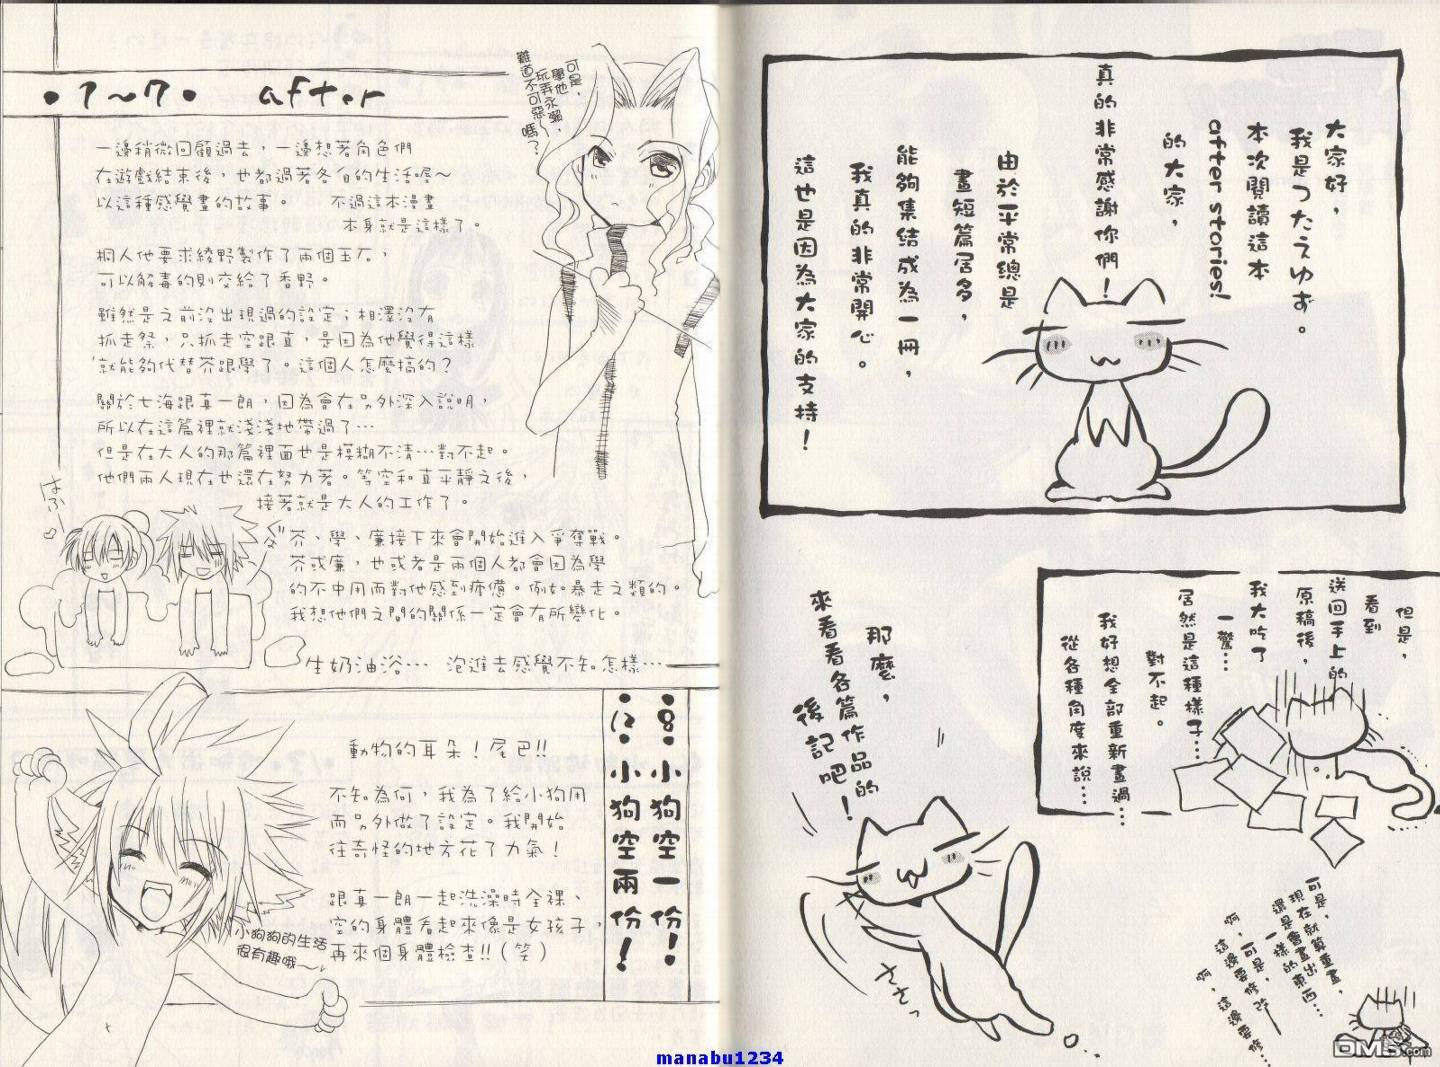 大家好，
我是つたえゆず。
本次閱讀這本
after stories!
的大家，
真的非常感謝你們！
由於平常總是
畫短篇居多，
能夠集結成為一冊，
我真的非常開心。
這也是因為大家的支持！
但是，
看到
送回手上的
原稿後，
我大吃了
一驚…
居然是這種樣子…
對不起。
我好想全部重新畫過…
從各種角度來說……
可是，
現在就算重畫，
還是會畫出
一樣的東西…
啊，可是，
這邊要修改
啊，這邊要修…
那麼，
來看看各篇作品的
後記吧！
ささっ
•1～7• after
一邊稍微回顧過去，一邊想著角色們
在遊戲結束後，也都過著各自的生活喔～
以這種感覺畫的故事。 不過這本漫畫
本身就是這樣了。
桐人他要求綾野製作了兩個玉石，
可以解毒的則交給了香野。
雖然是之前沒出現過的設定；相澤沒有
抓走祭，只抓走空跟直，是因為他覺得這樣
就能夠代替芥跟學了。這個人怎麼搞的？
關於七海跟真一朗，因為會在另外深入說明，
所以在這篇裡就淺淺地帶過了…
但是在大人的那篇裡面也是模糊不清…對不起。
他們兩人現在也還在努力著。等空和直平靜之後，
接著就是大人的工作了。
芥、學、廉接下來會開始進入爭奪戰。
芥或廉，也或者是兩個人都會因為學
的不中用而對他感到疲憊。例如暴走之類的。
我想他們之間的關係一定會有所變化。
生奶油浴… 泡進去感覺不知怎樣…
可是，
學他
玩弄永瀨，
難道不可惡嗎？
はふー♡
•8•小狗空一份!!
•12•小狗空兩份！
動物的耳朵！尾巴!!
不知為何，我為了給小狗用
而另外做了設定。我開始
往奇怪的地方花了力氣！
跟真一朗一起洗澡時全裸、
空的身體看起來像是女孩子，
再來個身體檢查!!（笑）
小狗狗的生活
很有趣哦～
manabu1234